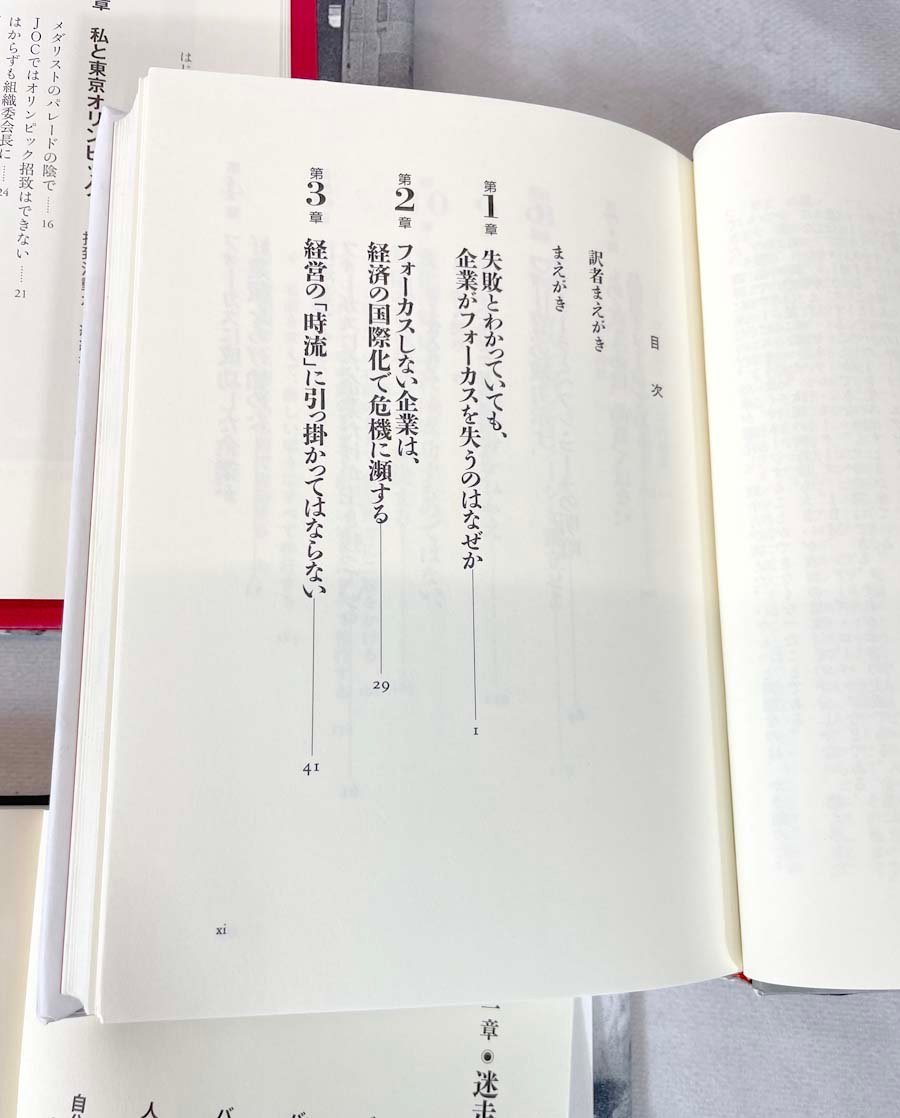 目次
訳者まえがき
まえがき
第1章 失敗とわかっていても、
企業がフォーカスを失うのはなぜか 1
第2章 フォーカスしない企業は、
経済の国際化で危機に瀕する 29
第3章 経営の「時流」に引っ掛かってはならない 41
xi
章 私と東京オリンピック
メダリストのパレードの陰で …… 16
JOCではオリンピック招致はできない …… 21
はからずも組織委会長に …… 24
章●迷走